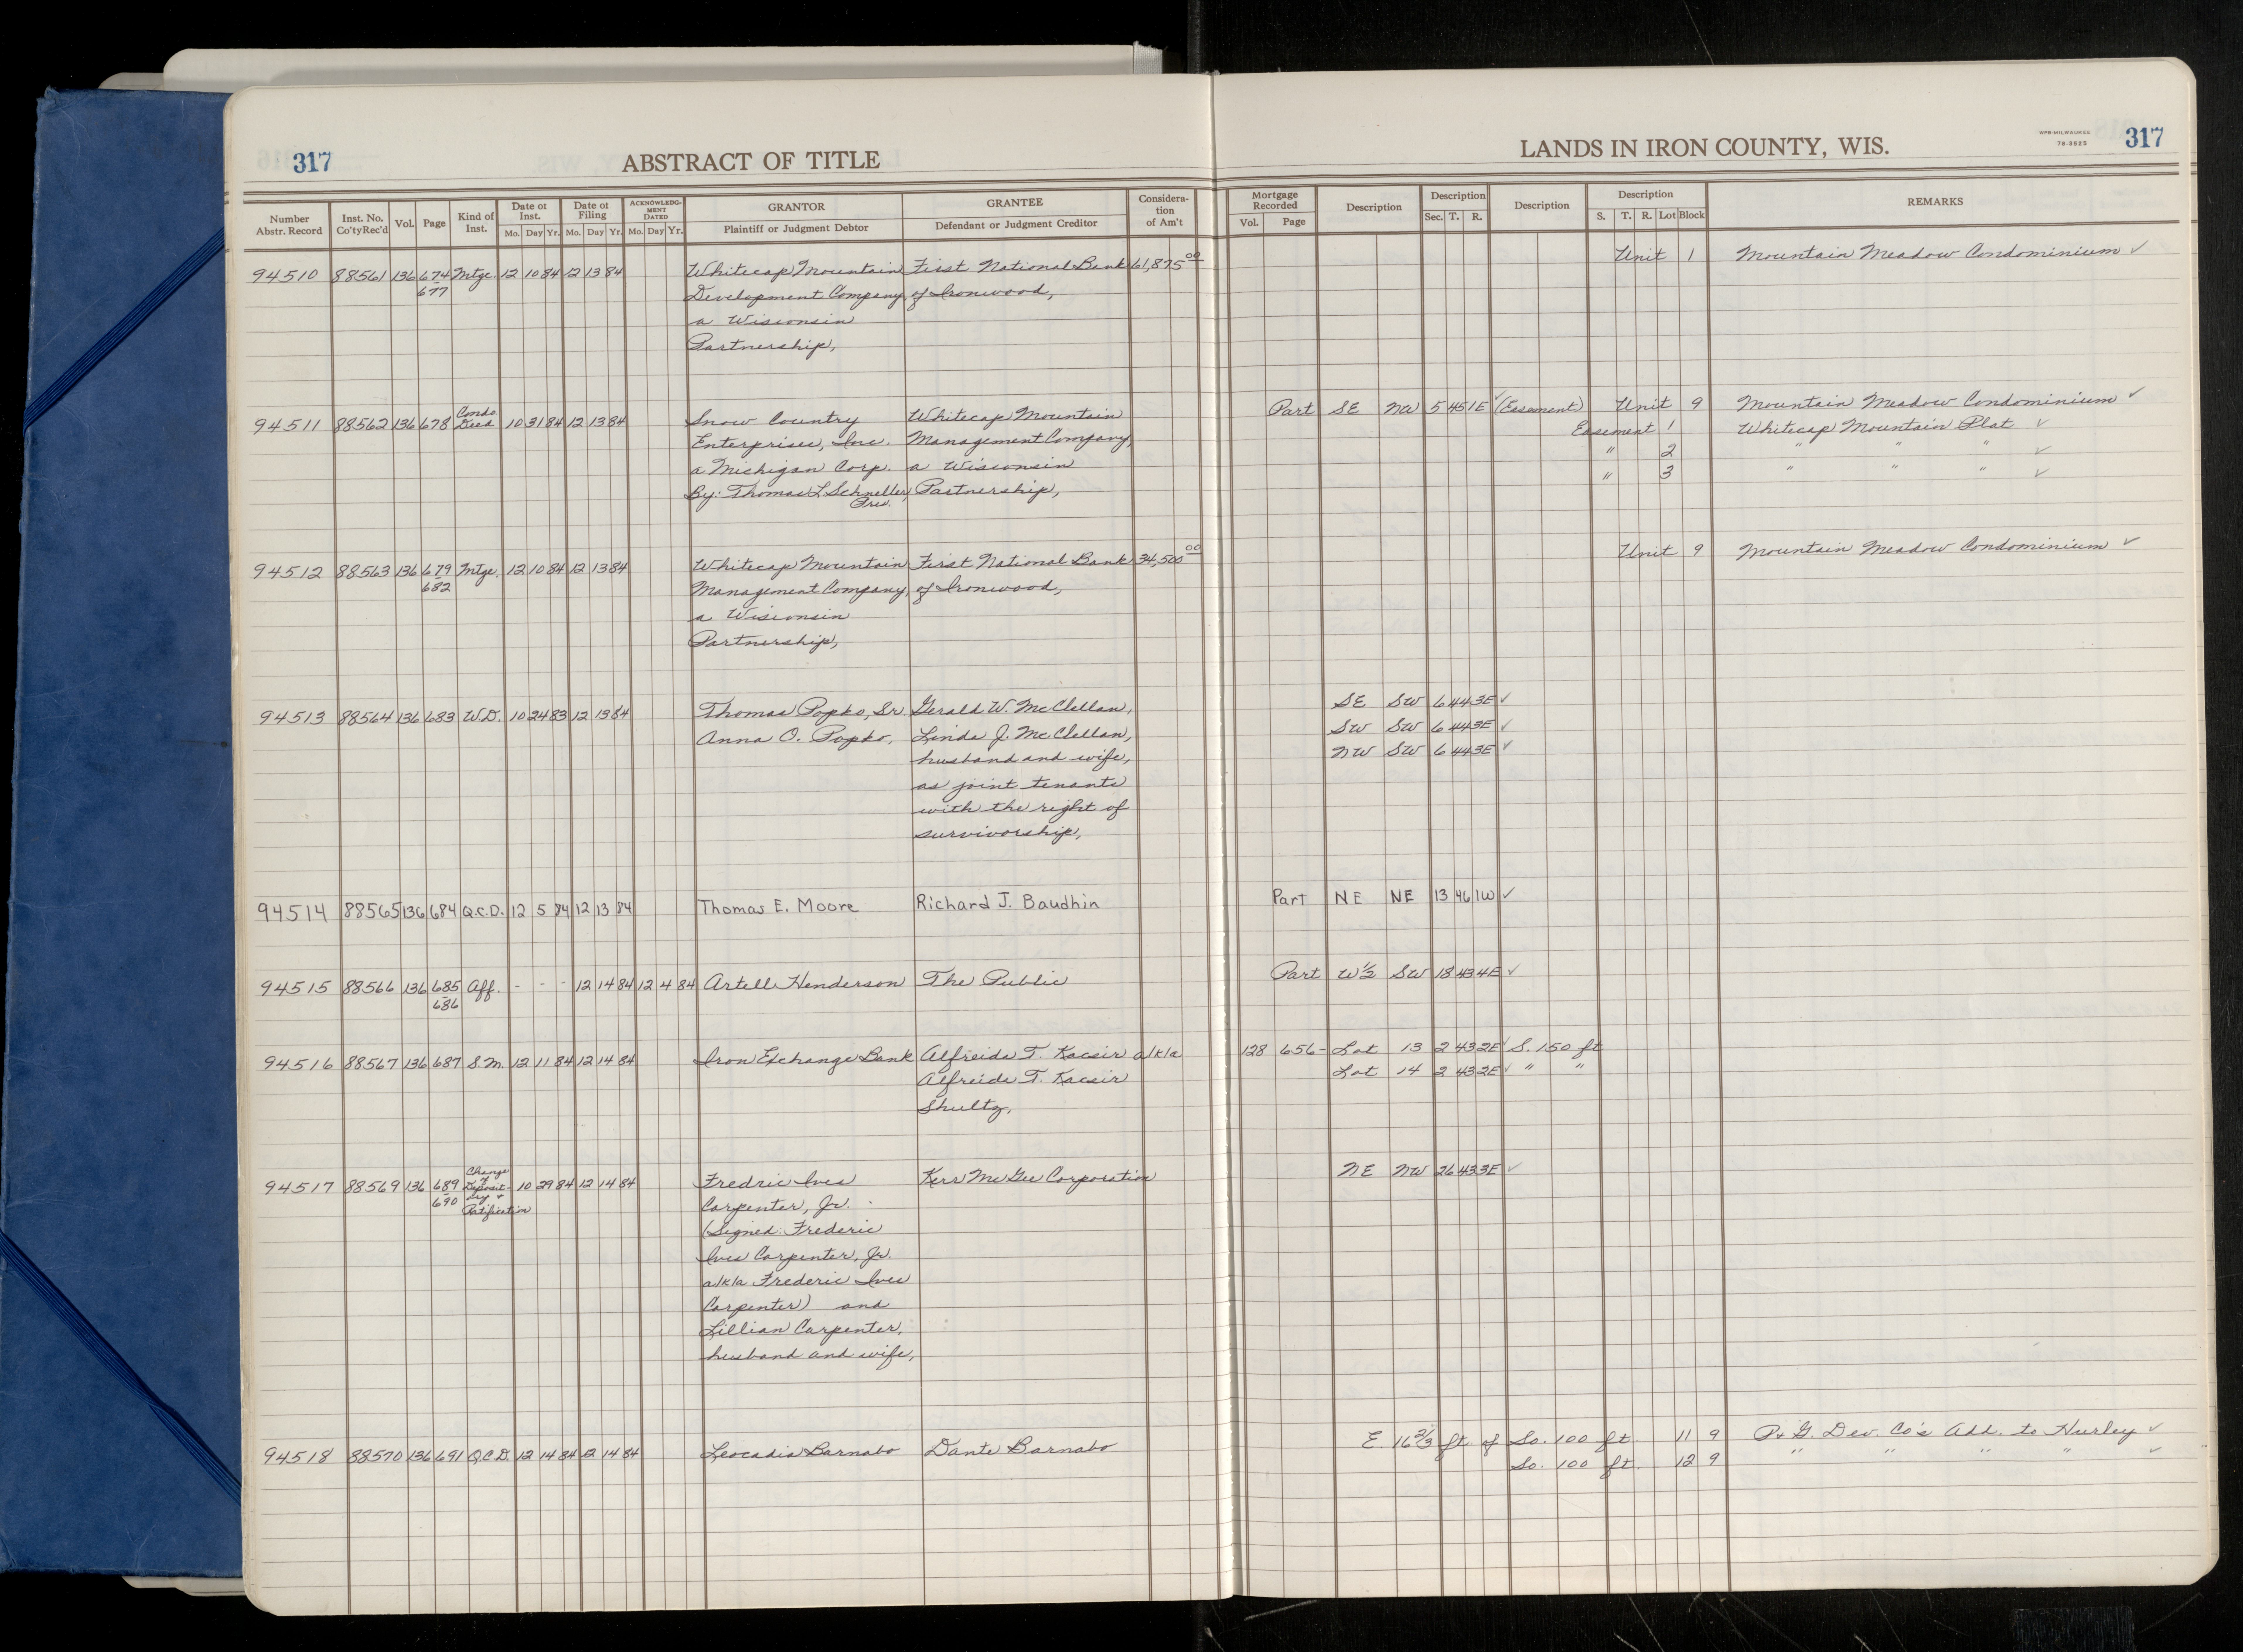 317 ABSTRACT OF TITLE
LANDS IN IRON COUNTY, WIS. WPB-MILWAUKEE 78-3525 317
Number Abstr. Record Inst. No. Co'ty Rec'd Vol. Page Kind of Inst. Date of Inst. Mo. Day Yr. Date of Filing Mo. Day Yr. ACKNOWLEDGMENT DATED Mo. Day Yr. GRANTOR Plaintiff or Judgment Debtor GRANTEE Defendant or Judgment Creditor Consideration of Am't
Mortgage Recorded Vol. Page Description Description Sec. T. R. Description Description S. T. R. Lot Block REMARKS
94510 88561 136 674 Mtge. 12 10 84 12 13 84 Whitecap Mountain First National Bank 61,875 00 Unit 1 Mountain Meadow Condominium ✓
677 Development Company, of Ironwood,
a Wisconsin
Partnership,
94511 88562 136 678 Condo Deed 10 31 84 12 13 84 Snow Country Whitecap Mountain Part SE NW 5 45 1E ✓ (Easement) Unit 9 Mountain Meadow Condominium ✓
Enterprises, Inc. Management Company, Easement 1 Whitecap Mountain Plat ✓
a Michigan Corp. a Wisconsin " 2 " " " ✓
By: Thomas L. Schneller, Partnership, " 3 " " " ✓
Pres.
94512 88563 136 679 Mtge. 12 10 84 12 13 84 Whitecap Mountain First National Bank 34,500 00 Unit 9 Mountain Meadow Condominium ✓
682 Management Company, of Ironwood,
a Wisconsin
Partnership,
94513 88564 136 683 W.D. 10 24 83 12 13 84 Thomas Popko, Sr. Gerald W. McClellan, SE SW 6 44 3E ✓
Anna O. Popko, Linda J. McClellan, SW SW 6 44 3E ✓
husband and wife, NW SW 6 44 3E ✓
as joint tenants
with the right of
survivorship,
94514 88565 136 684 Q.C.D. 12 5 84 12 13 84 Thomas E. Moore Richard J. Baudhin Part NE NE 13 46 1W ✓
94515 88566 136 685 Aff. - - - 12 14 84 12 4 84 Artell Henderson The Public Part W½ SW 18 43 4E ✓
686
94516 88567 136 687 S.M. 12 11 84 12 14 84 Iron Exchange Bank Alfreida T. Kacsir a/k/a 128 656- Lot 13 2 43 2E ✓ S. 150 ft
Alfreida T. Kacsir Lot 14 2 43 2E ✓ " "
Shultz,
94517 88569 136 689 Change of Depository & Ratification 10 29 84 12 14 84 Fredric Ives Kerr McGee Corporation NE NW 26 43 3E ✓
690 Carpenter, Jr.
(Signed: Frederic
Ives Carpenter, Jr.
a/k/a Frederic Ives
Carpenter) and
Lillian Carpenter,
husband and wife,
94518 88570 136 691 Q.C.D. 12 14 84 12 14 84 Leocadia Barnabo Dante Barnabo E 16 2/3 ft. of So. 100 ft. 11 9 P. & G. Dev. Co's Add. to Hurley ✓
So. 100 ft. 12 9 " " " " ✓